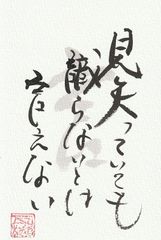 見知っていても
識らないとは
言えない